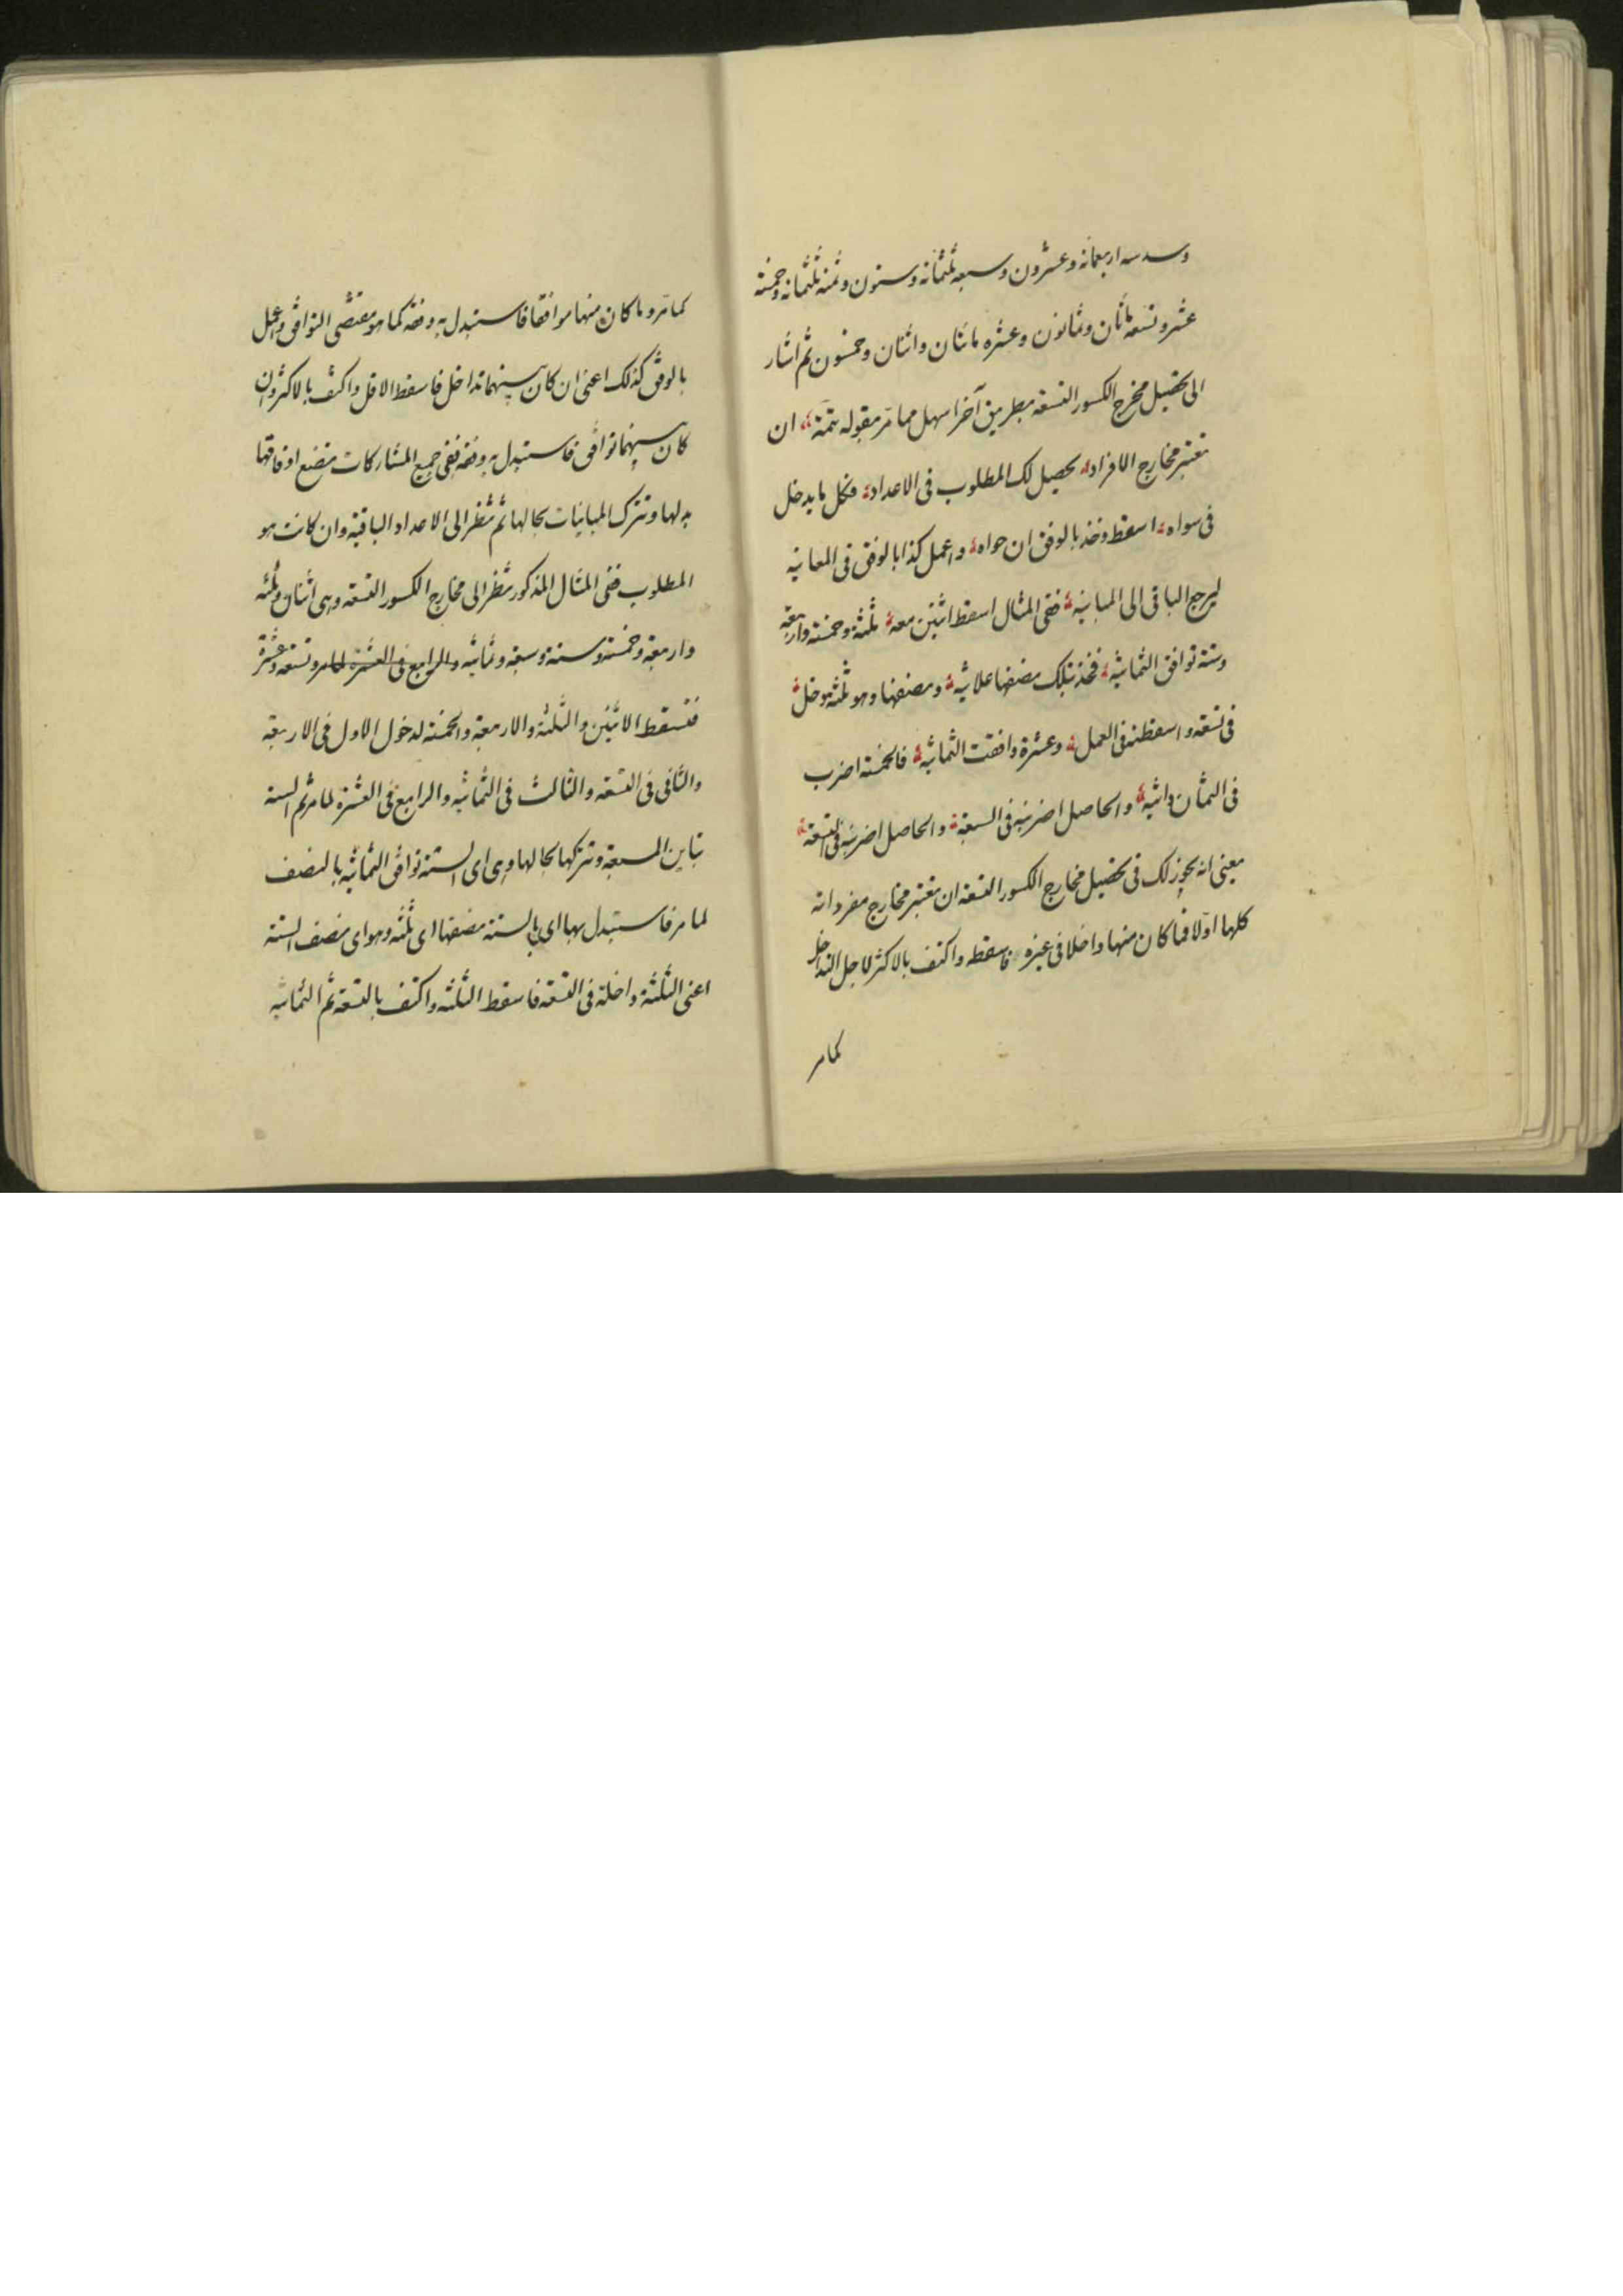 وسدسه اربعمائه وعشرون وسبعه ثلثمائه وستون وثمنه ثلثمائه وخمسة
عشر وتسعه مائتان وثمانون وعشره مائتان واثنان وخمسون ثم اشار
الى تحصيل مخرج الكسور التسعة بطريق آخر اسهل مما مرّ بقوله تتمة ان
تعتبر مخارج الافراد يحصل لك المطلوب فى الاعداد فكل ما يدخل
فى سواه اسقط وخذ بالوفق ان حواه واعمل كذا بالوفق فى المعاينه
ليرجع الباقى الى المباينة ففى المثال اسقط اثنين معه ثلثة وخمسة واربعة
وستة توافق الثمانية فخذ بتلك نصفها علانية ونصفها وهو ثلثة دخل
فى تسعة واسقطنه فى العمل وعشرة وافقت الثمانية فالخمسة اضرب
فى الثمان والحاصل اضربنه فى السبعة والحاصل اضربنه فى التسعة
يعنى انه يجوز لك فى تحصيل مخارج الكسور التسعة ان تعتبر مخارج مفرداته
كلها اوّلا فما كان منها داخلا فى غيره فاسقطه واكتف بالاكثر لاجل التداخل
كما مر
كما مرّ وما كان منها موافقا فاستبدل به وفقه كما هو مقتضى التوافق واعمل
بالوفق كذلك اعنى ان كان بينهما تداخل فاسقط الاقل واكتف بالاكثر وان
كان بينهما توافق فاستبدل به وفقه ففى جميع المشاركات تضع اوفاقها
بدلها وتترك المباينات بحالها ثم تنظر الى الاعداد الباقية وان كانت هو
المطلوب ففى المثال المذكور تنظر الى مخارج الكسور التسعة وهى اثنان وثلثه
واربعة وخمسة وستة وسبعة وثمانيه والرابع فى العشرة لما مر وتسعة وعشرة
فتسقط الاثنين والثلثة والاربعة والخمسة لدخول الاول فى الاربعة
والثانى فى التسعه والثالث فى الثمانيه والرابع فى العشرة لما مر ثم الستة
تباين السبعة وتتركها بحالها وهى اى الستة توافق الثمانيه بالنصف
لما مر فاستبدل بها اى بالستة نصفها اى ثلثه وهو اى نصف الستة
اعنى الثلثة داخلة فى التسعة فاسقط الثلثه واكتف بالتسعة ثم الثمانيه